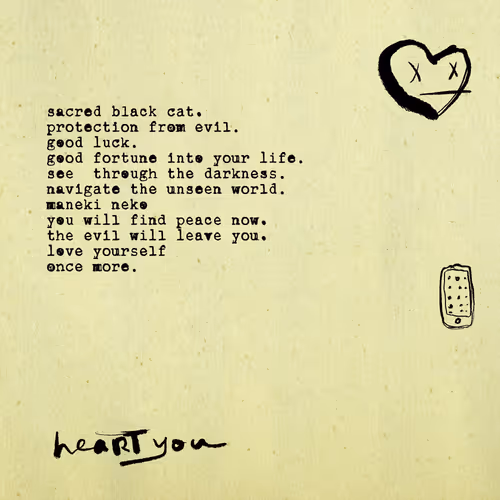 sacred black cat.
protection from evil.
good luck.
good fortune into your life.
see  through the darkness.
navigate the unseen world.
maneki neko
you will find peace now.
the evil will leave you.
love yourself
once more.
heaRT you